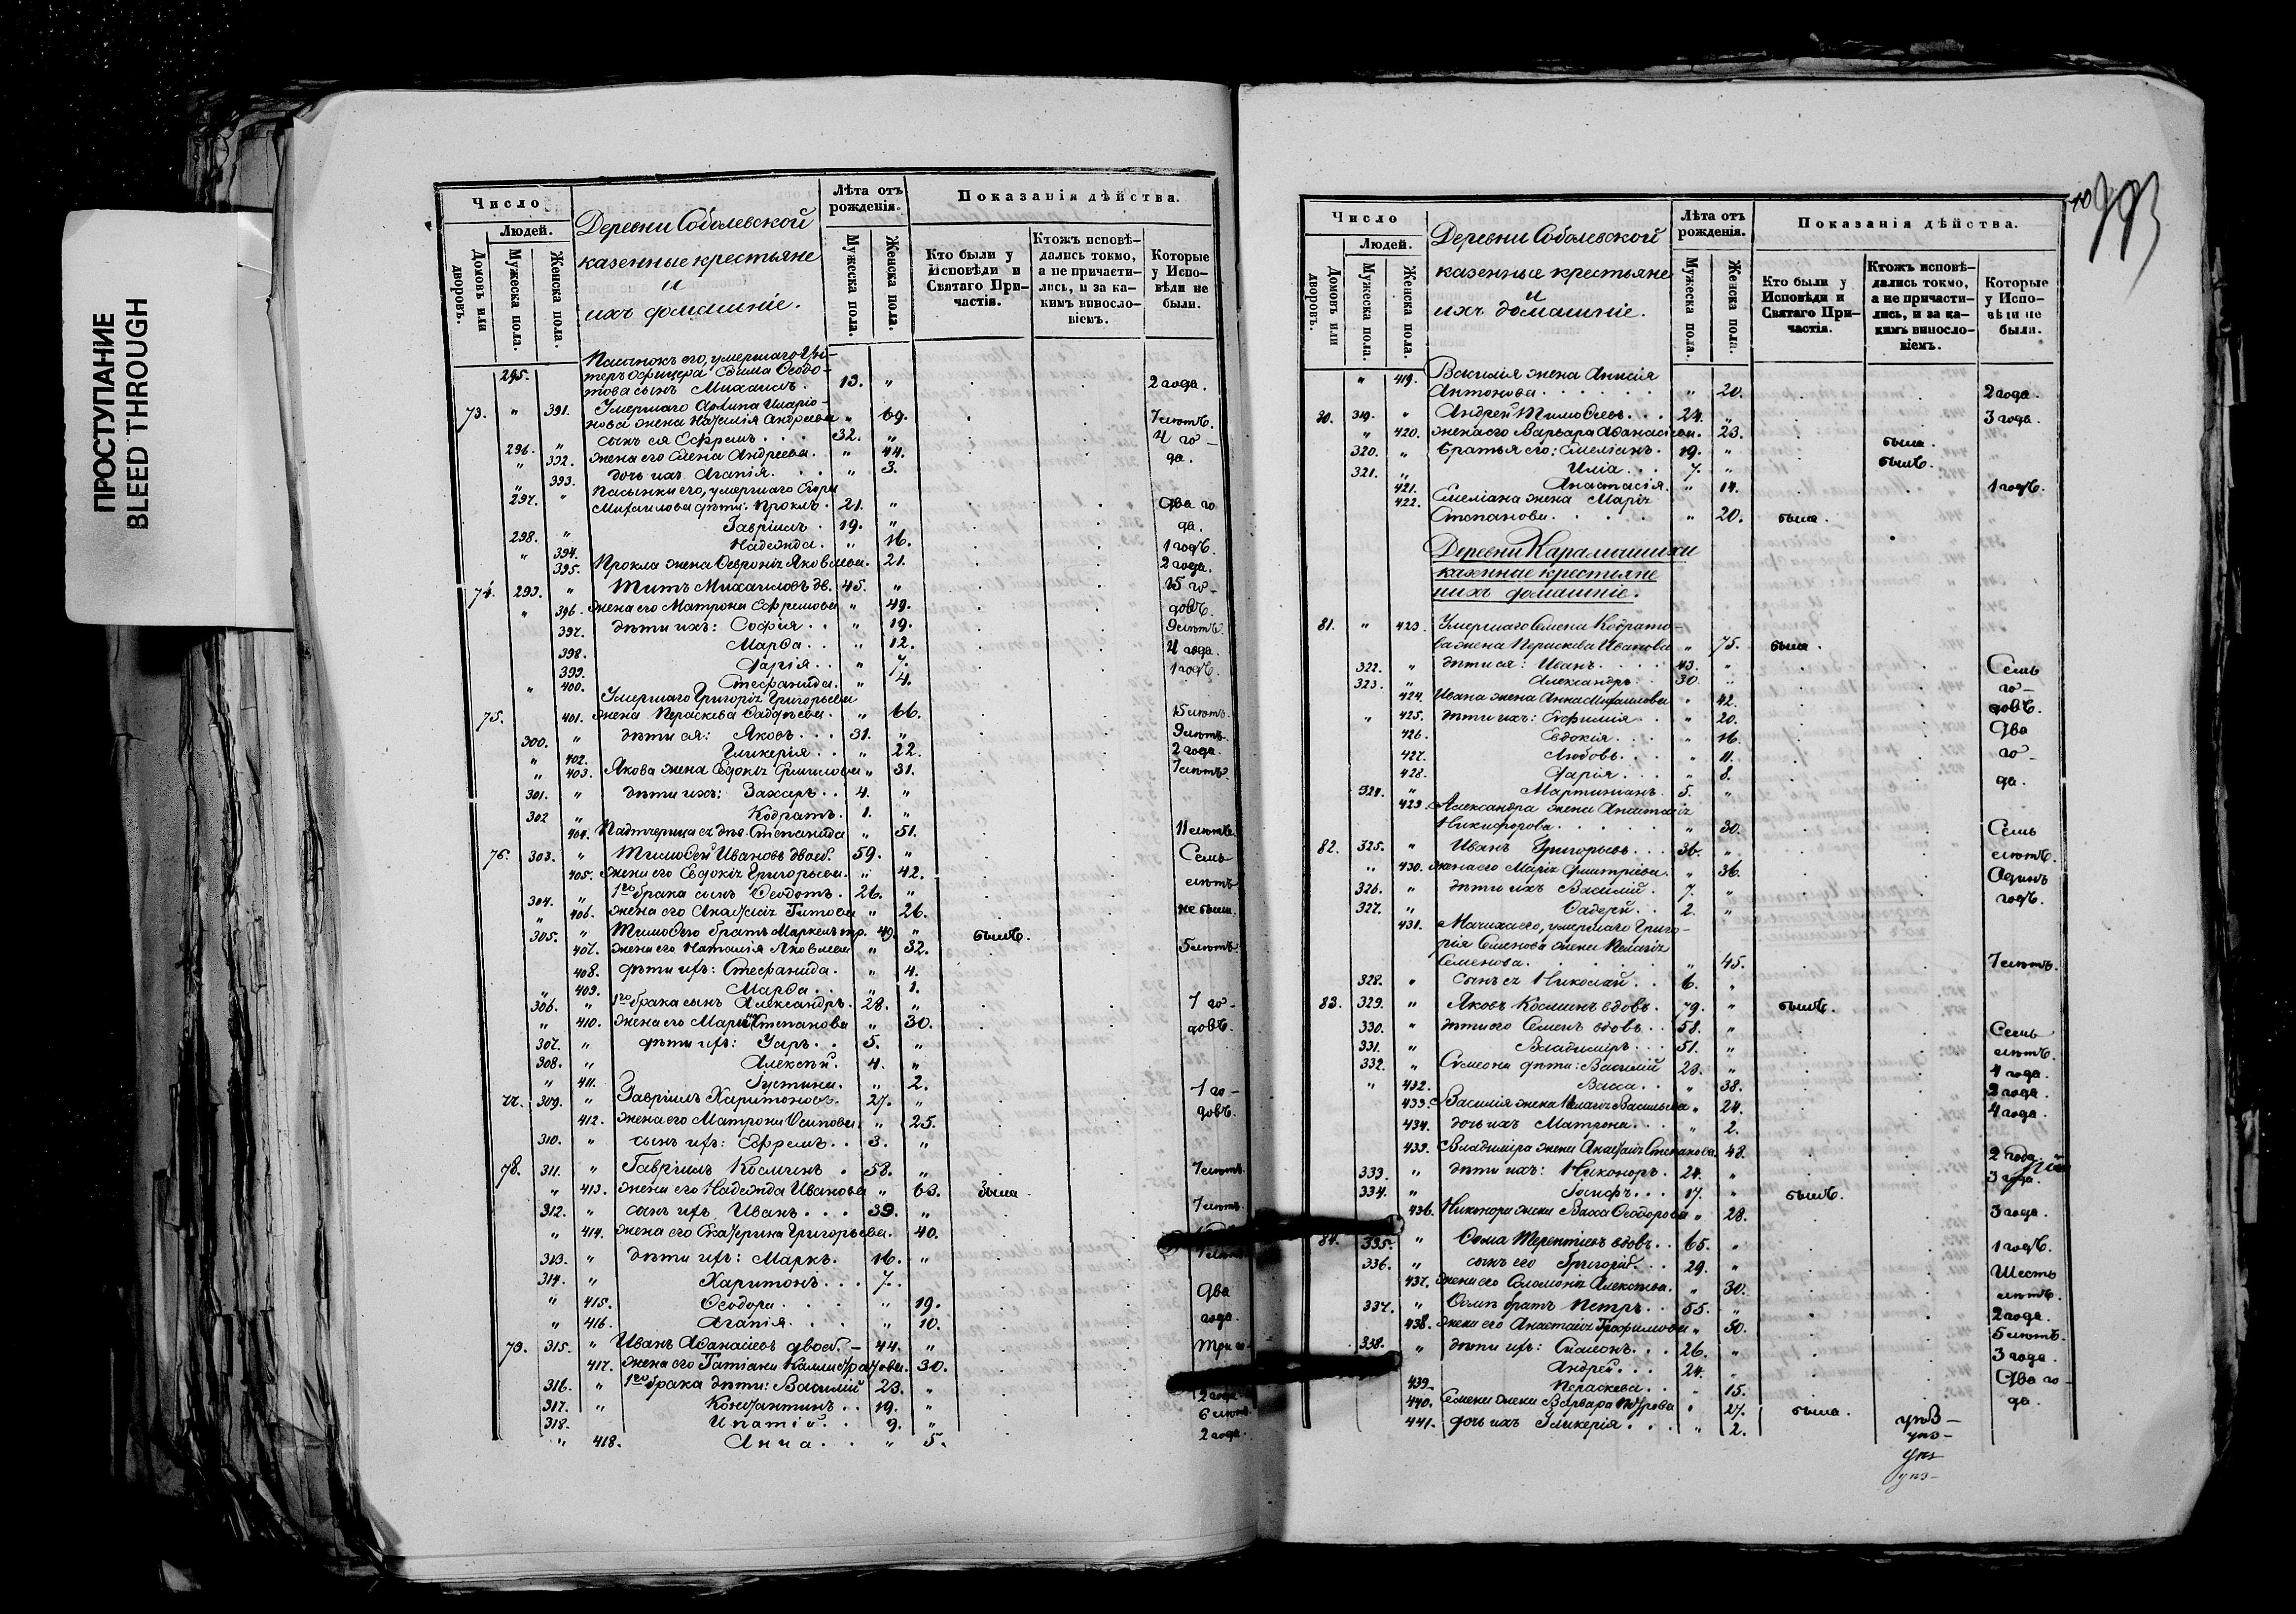 ПРОСТУПАНИЕ
BLEED THROUGH
Число
Людей.
Домовъ или дворовъ.
Мужеска пола.
Женска пола.
Деревни Соболевской
казенные крестьяне
и
ихъ домашніе.
Лѣта отъ рожденія.
Мужеска пола.
Женска пола.
Показанія дѣйства.
Кто были у Исповѣди и Святаго Причастія.
Ктожъ исповѣдались токмо, а не причастились, и за какимъ винословіемъ.
Которые у Исповѣди не были.
Пасынокъ его, умершаго Ун-
295. теръ офицера Ѳедо-
това сынъ Михаилъ. 13. " 2 года.
73. " 391. Умершаго Иларіо-
нова жена Наталія Андреева " 69. 7 лѣтъ.
296. " сынъ ея Ефремъ. 32. " 4 го-
" 392. жена его Елена Андреева. " 44. да.
" 393. дочь ихъ Агапія. " 3.
Пасынки его, умершаго Егора
297. " Михаилова дѣти: Проклъ. 21. " Два го
298. " Гавріилъ. 19. " да.
" 394. Надежда. " 16. 1 годъ.
395. Прокла жена Ѳевронія Яковлева. 21. 2 года.
74. 299. " Титъ Михаиловъ дв. 45. " 15 го-
" 396. жена его Матрона Ефремова " 49. довъ.
397. дѣти ихъ: Софія. " 19. 9 лѣтъ.
398. Марѳа. " 12. 4 года.
399. Дарія. " 7. 1 годъ.
" 400. Стефанида. " 4.
Умершаго Григорія Григорьева
75. 401. жена Параскева Ѳаддѣева. " 66. 15 лѣтъ.
300. " дѣти ея: Яковъ. 31. " 9 лѣтъ.
" 402. Гликерія. " 22. 2 года.
" 403. Якова жена Евдокія " 31. 7 лѣтъ.
301. " дѣти ихъ: Захаръ. 4. "
302 " Кодратъ. 1. "
404. Падчерица Степанида " 51. 11 лѣтъ.
76. 303. " Тимоѳей Ивановъ двоеб. 59. " Семь
405. Жена его Евдокія Григорьева. " 42. лѣтъ
304. " 1го брака сынъ Ѳеодотъ. 26. "
" 406. жена его Анастасія Титова " 26. не была.
305. " Тимоѳея братъ Маркелъ тр. 49. " былъ.
407. жена его Наталія Яковлева " 32. 5 лѣтъ.
408. дѣти ихъ: Стефанида. " 4.
" 409. Марѳа. " 1.
306. " 1го брака сынъ Александръ. 28. " 7 го-
" 410. жена его Марія Степанова " 30. довъ.
307. " дѣти ихъ: Уаръ. 5. "
308. " Алексѣй. 4. "
" 411. Іустина. " 2.
77. 309. " Гавріилъ Харитоновъ. 27. " 7 го-
412. жена его Матрона Осипова. " 25. довъ.
310. " сынъ ихъ: Ефремъ. 3. "
78. 311. " Гавріилъ Косминъ. 58. " 7 лѣтъ.
" 413. жена его Надежда Иванова " 63. была.
312. " сынъ ихъ Иванъ. 39. " 7 лѣтъ.
" 414. жена его Екатерина Григорьева. 40.
313. " дѣти ихъ: Маркъ. 16. "
314. " Харитонъ. 7. Два
" 415. Ѳеодора. " 19.
" 416. Агапія. " 10. года.
79. 315. " Иванъ Аѳанасіевъ двоеб. 44. " Три го-
417. жена его Татіана Каллистратова. 30.
316. " 1го брака дѣти: Василій 23. " 2 года.
317. " Константинъ. 19. " 6 лѣтъ.
318. Ипатій. 9. "
" 418. Анна. " 5. 2 года.
Число
Людей.
Домовъ или дворовъ.
Мужеска пола.
Женска пола.
Деревни Соболевской
казенные крестьяне
и
ихъ домашніе.
Лѣта отъ рожденія.
Мужеска пола.
Женска пола.
Показанія дѣйства.
Кто были у Исповѣди и Святаго Причастія.
Ктожъ исповѣдались токмо, а не причастились, и за какимъ винословіемъ.
Которые у Исповѣди не были.
" 419. Василія жена Анисія
Антонова. " 20. 2 года.
80. 319. " Андрей Тимоѳеевъ. 24. " 3 года.
" 420. жена его Варвара Аѳанасіева. 23. была.
320. " братья его: Емеліанъ. 19. " былъ.
321. " Илія. 7. "
421. Анастасія. " 14. 1 годъ.
422. Емеліана жена Марія
Степанова. " 20. была.
Деревни Карамышихи
казенные крестьяне
и ихъ домашніе.
81. " 423. Умершаго Семена Кодрато-
ва жена Параскева Иванова " 75. была.
322. " дѣти ея: Иванъ. 43. " Семь
323. " Александръ. 30. " го-
424. Ивана жена Анна Михаилова " 42. довъ.
" 425. дѣти ихъ: Евфимія " 20. Два
426. Евдокія. " 16.
427. Любовь. " 11. го-
428. Дарія. " 8. да.
324. " Мартиніанъ. 5. "
429. Александра жена Анастасія
Никифорова. " 30. Семь
82. 325. " Иванъ Григорьевъ. 36. " лѣтъ.
" 430. жена его Марія Дмитріева. " 36. Одинъ
326. " дѣти ихъ Василій. 7. " годъ.
327. " Ѳаддей. 2. "
431. Мачиха его, умершаго Григо-
рія Семенова жена Пелагія
Семенова. " 45. 7 лѣтъ.
328. " сынъ ея Николай. 6. "
83. 329. " Яковъ Косминъ вдовъ. 79. " былъ.
330. " дѣти его Семенъ вдовъ. 58. " Семь
331. " Владиміръ. 51. " лѣтъ.
332. " Симеона дѣти: Василій 23. " 4 года.
" 432. Васса. " 38. 2 года.
433. Василія жена Пелагія Васильева " 24. 4 года.
434. дочь ихъ Матрона. " 2.
435. Владиміра жена Анастасія Степанова. 48. 2 года.
333. " дѣти ихъ: Никаноръ. 24. " 3 года.
334. " Іосифъ. 17. " былъ.
436. Никанора жена Васса Ѳеодорова " 28. 3 года.
84. 335. " Ѳома Терентіевъ вдовъ. 65. " 1 годъ.
336. " сынъ его Григорій. 29. " Шесть
437. жена его Соломонія Алексѣева. " 30. лѣтъ.
337. " Ѳомы братъ Петръ. 55. " 2 года.
438. жена его Анастасія Трофимова " 50. 5 лѣтъ.
338. " дѣти ихъ: Симеонъ. 26. " 3 года.
Андрей. 24. Два го-
439. Параскева. " 15. да.
440. Семена жена Варвара Петрова " 27. была.
441. дочь ихъ Гликерія. " 2.